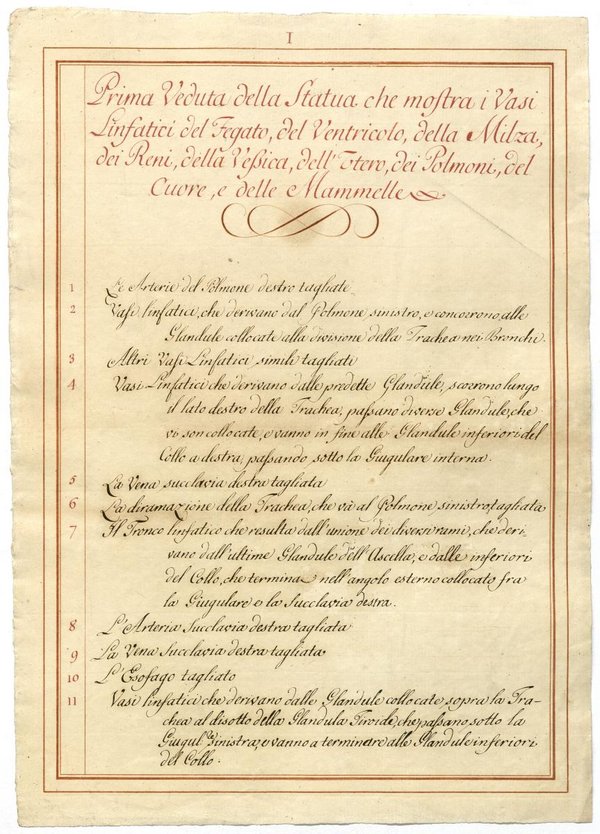 I
Prima Veduta della Statua che mostra i Vasi
Linfatici del Fegato, del Ventricolo, della Milza,
dei Reni, della Vessica, dell'Utero, dei Polmoni, del
Cuore, e delle Mammelle
1 Le Arterie del Polmone destro tagliate
2 Vasi linfatici, che derivano dal Polmone sinistro, e concorrono alle
Glandule collocate alla divisione della Trachea nei Bronchi.
3 Altri Vasi Linfatici simili tagliati
4 Vasi Linfatici che derivano dalle predette Glandule, scorrono lungo
il lato destro della Trachea, passano diverse Glandule, che
vi son collocate, e vanno in fine alle Glandule inferiori del
Collo a destra, passando sotto la Giugulare interna.
5 La Vena succlavia destra tagliata
6 La diramazione della Trachea, che và al Polmone sinistro, tagliata
7 Il Tronco linfatico che resulta dall'unione dei diversi rami, che deri-
vano dall'ultime Glandule dell'Ascella, e dalle inferiori
del Collo, che termina nell'angolo esterno collocato fra
la Giugulare e la Succlavia destra.
8 L'Arteria Succlavia destra tagliata
9 La Vena Succlavia destra tagliata
10 L'Esofago tagliato
11 Vasi linfatici che derivano dalle Glandule collocate sopra la Tra-
chea al disotto della Glandula Tiroide, che passano sotto la
Giugul.re sinistra, e vanno a terminare alle Glandule inferiori
del Collo.